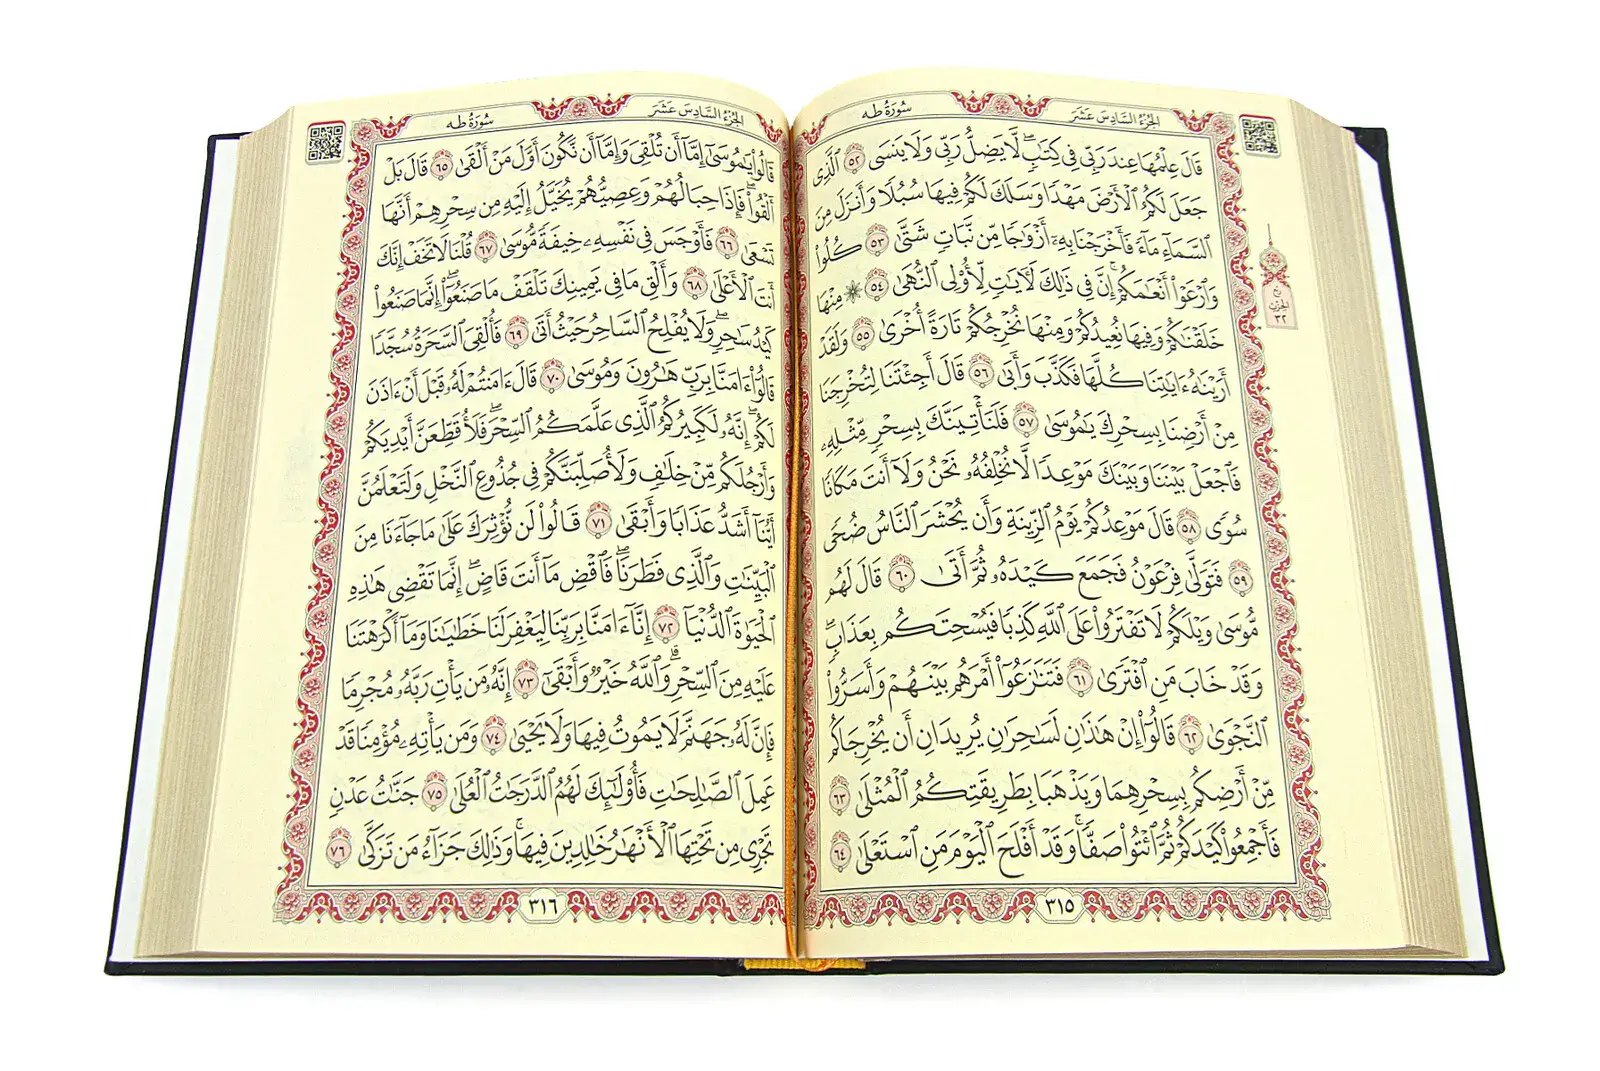 الجزء السادس عشر
سورة طه
قَالَ عِلْمُهَا عِندَ رَبِّي فِي كِتَٰبٍۖ لَّا يَضِلُّ رَبِّي وَلَا يَنسَى ٥٢ ٱلَّذِي
جَعَلَ لَكُمُ ٱلْأَرْضَ مَهْدًا وَسَلَكَ لَكُمْ فِيهَا سُبُلًا وَأَنزَلَ مِنَ
ٱلسَّمَآءِ مَآءً فَأَخْرَجْنَا بِهِۦٓ أَزْوَٰجًا مِّن نَّبَاتٍ شَتَّىٰ ٥٣ كُلُوا۟
وَٱرْعَوْا۟ أَنْعَٰمَكُمْۚ إِنَّ فِي ذَٰلِكَ لَءَايَٰتٍ لِّأُو۟لِي ٱلنُّهَىٰ ٥٤ ۞ مِنْهَا
خَلَقْنَٰكُمْ وَفِيهَا نُعِيدُكُمْ وَمِنْهَا نُخْرِجُكُمْ تَارَةً أُخْرَىٰ ٥٥ وَلَقَدْ
أَرَيْنَٰهُ ءَايَٰتِنَا كُلَّهَا فَكَذَّبَ وَأَبَىٰ ٥٦ قَالَ أَجِئْتَنَا لِتُخْرِجَنَا
مِنْ أَرْضِنَا بِسِحْرِكَ يَٰمُوسَىٰ ٥٧ فَلَنَأْتِيَنَّكَ بِسِحْرٍ مِّثْلِهِۦ
فَٱجْعَلْ بَيْنَنَا وَبَيْنَكَ مَوْعِدًا لَّا نُخْلِفُهُۥ نَحْنُ وَلَآ أَنتَ مَكَانًا
سُوًى ٥٨ قَالَ مَوْعِدُكُمْ يَوْمُ ٱلزِّينَةِ وَأَن يُحْشَرَ ٱلنَّاسُ ضُحًى
٥٩ فَتَوَلَّىٰ فِرْعَوْنُ فَجَمَعَ كَيْدَهُۥ ثُمَّ أَتَىٰ ٦٠ قَالَ لَهُم
مُّوسَىٰ وَيْلَكُمْ لَا تَفْتَرُوا۟ عَلَى ٱللَّهِ كَذِبًا فَيُسْحِتَكُم بِعَذَابٍۖ
وَقَدْ خَابَ مَنِ ٱفْتَرَىٰ ٦١ فَتَنَٰزَعُوٓا۟ أَمْرَهُم بَيْنَهُمْ وَأَسَرُّوا۟
ٱلنَّجْوَىٰ ٦٢ قَالُوٓا۟ إِنْ هَٰذَٰنِ لَسَٰحِرَٰنِ يُرِيدَانِ أَن يُخْرِجَاكُم
مِّنْ أَرْضِكُم بِسِحْرِهِمَا وَيَذْهَبَا بِطَرِيقَتِكُمُ ٱلْمُثْلَىٰ ٦٣
فَأَجْمِعُوا۟ كَيْدَكُمْ ثُمَّ ٱئْتُوا۟ صَفًّاۚ وَقَدْ أَفْلَحَ ٱلْيَوْمَ مَنِ ٱسْتَعْلَىٰ ٦٤
٣١٥
الجزء السادس عشر
سورة طه
قَالُوا۟ يَٰمُوسَىٰٓ إِمَّآ أَن تُلْقِيَ وَإِمَّآ أَن نَّكُونَ أَوَّلَ مَنْ أَلْقَىٰ ٦٥ قَالَ بَلْ
أَلْقُوا۟ۖ فَإِذَا حِبَالُهُمْ وَعِصِيُّهُمْ يُخَيَّلُ إِلَيْهِ مِن سِحْرِهِمْ أَنَّهَا
تَسْعَىٰ ٦٦ فَأَوْجَسَ فِي نَفْسِهِۦ خِيفَةً مُّوسَىٰ ٦٧ قُلْنَا لَا تَخَفْ إِنَّكَ
أَنتَ ٱلْأَعْلَىٰ ٦٨ وَأَلْقِ مَا فِي يَمِينِكَ تَلْقَفْ مَا صَنَعُوٓا۟ۖ إِنَّمَا صَنَعُوا۟
كَيْدُ سَٰحِرٍۖ وَلَا يُفْلِحُ ٱلسَّاحِرُ حَيْثُ أَتَىٰ ٦٩ فَأُلْقِيَ ٱلسَّحَرَةُ سُجَّدًا
قَالُوٓا۟ ءَامَنَّا بِرَبِّ هَٰرُونَ وَمُوسَىٰ ٧٠ قَالَ ءَامَنتُمْ لَهُۥ قَبْلَ أَنْ ءَاذَنَ
لَكُمْۖ إِنَّهُۥ لَكَبِيرُكُمُ ٱلَّذِي عَلَّمَكُمُ ٱلسِّحْرَۖ فَلَأُقَطِّعَنَّ أَيْدِيَكُمْ
وَأَرْجُلَكُم مِّنْ خِلَٰفٍ وَلَأُصَلِّبَنَّكُمْ فِي جُذُوعِ ٱلنَّخْلِ وَلَتَعْلَمُنَّ
أَيُّنَآ أَشَدُّ عَذَابًا وَأَبْقَىٰ ٧١ قَالُوا۟ لَن نُّؤْثِرَكَ عَلَىٰ مَا جَآءَنَا مِنَ
ٱلْبَيِّنَٰتِ وَٱلَّذِي فَطَرَنَاۖ فَٱقْضِ مَآ أَنتَ قَاضٍۖ إِنَّمَا تَقْضِي هَٰذِهِ
ٱلْحَيَوٰةَ ٱلدُّنْيَآ ٧٢ إِنَّآ ءَامَنَّا بِرَبِّنَا لِيَغْفِرَ لَنَا خَطَٰيَٰنَا وَمَآ أَكْرَهْتَنَا
عَلَيْهِ مِنَ ٱلسِّحْرِۗ وَٱللَّهُ خَيْرٌ وَأَبْقَىٰٓ ٧٣ إِنَّهُۥ مَن يَأْتِ رَبَّهُۥ مُجْرِمًا
فَإِنَّ لَهُۥ جَهَنَّمَ لَا يَمُوتُ فِيهَا وَلَا يَحْيَىٰ ٧٤ وَمَن يَأْتِهِۦ مُؤْمِنًا قَدْ
عَمِلَ ٱلصَّٰلِحَٰتِ فَأُو۟لَٰٓئِكَ لَهُمُ ٱلدَّرَجَٰتُ ٱلْعُلَىٰ ٧٥ جَنَّٰتُ عَدْنٍ
تَجْرِي مِن تَحْتِهَا ٱلْأَنْهَٰرُ خَٰلِدِينَ فِيهَاۚ وَذَٰلِكَ جَزَآءُ مَن تَزَكَّىٰ ٧٦
٣١٦